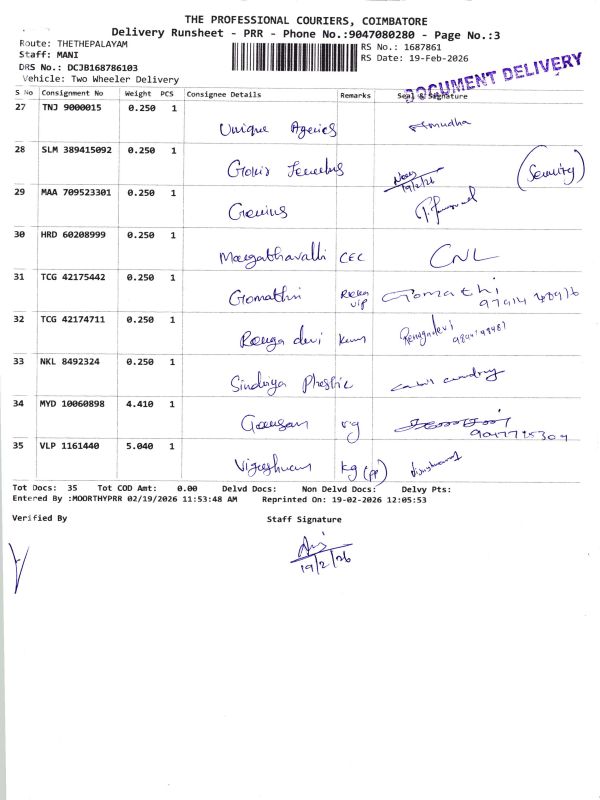 THE PROFESSIONAL COURIERS, COIMBATORE
Delivery Runsheet - PRR - Phone No.:9047080280 - Page No.:3
Route: THETHEPALAYAM
Staff: MANI
DRS No.: DCJB168786103
Vehicle: Two Wheeler Delivery
RS No.: 1687861
RS Date: 19-Feb-2026
DOCUMENT DELIVERY
S No Consignment No Weight PCS Consignee Details Remarks Seal & Signature
27 TNJ 9000015 0.250 1
Unique Agencies Amudha
28 SLM 389415092 0.250 1
19/2/26 (Security)
29 MAA 709523301 0.250 1
Genius
30 HRD 60208999 0.250 1
CEC CNL
31 TCG 42175442 0.250 1
Gomathi vip Gomathi
32 TCG 42174711 0.250 1
Renga devi Rengadevi
33 NKL 8492324 0.250 1
34 MYD 10060898 4.410 1
35 VLP 1161440 5.040 1
kg (PP)
Tot Docs: 35 Tot COD Amt: 0.00 Delvd Docs: Non Delvd Docs: Delvy Pts:
Entered By :MOORTHYPRR 02/19/2026 11:53:48 AM Reprinted On: 19-02-2026 12:05:53
Verified By Staff Signature
19/2/26